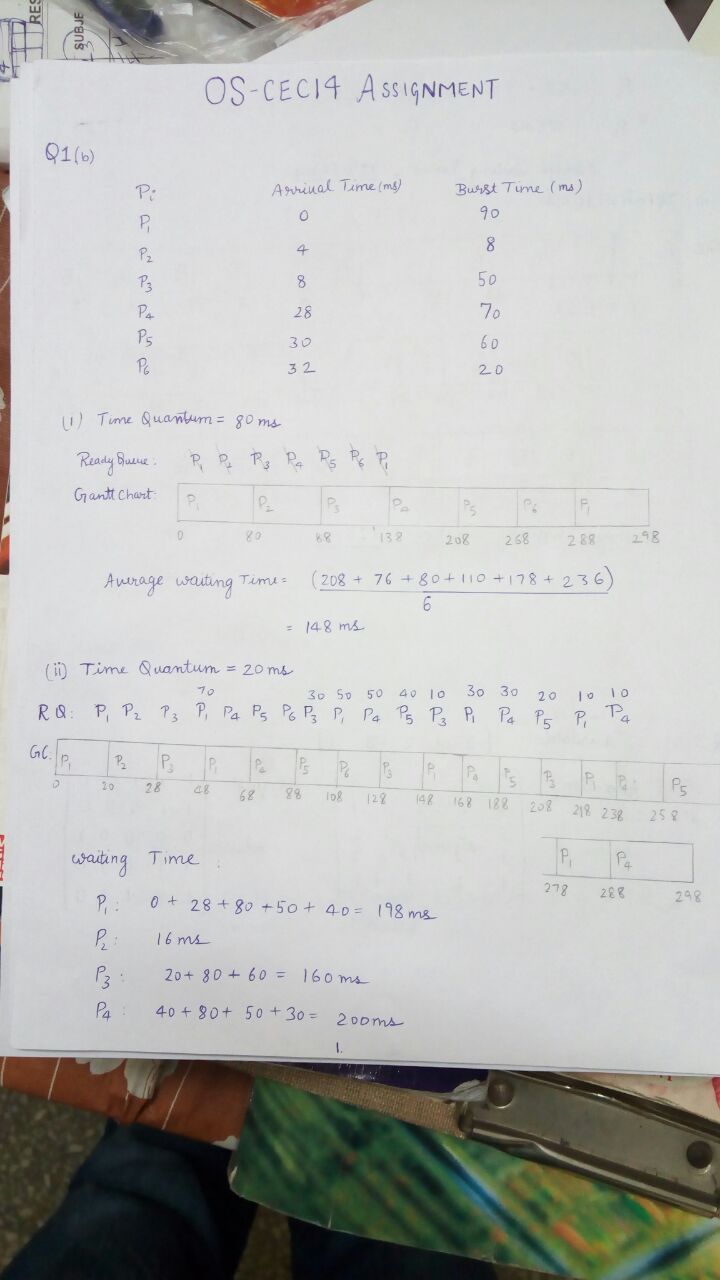 RES
SUBJE
OS-CEC14 ASSIGNMENT
Q1(b)
Pi Arrival Time (ms) Burst Time (ms)
P1 0 90
P2 4 8
P3 8 50
P4 28 70
P5 30 60
P6 32 20
(i) Time Quantum = 80 ms
Ready Queue: P1 P2 P3 P4 P5 P6 P1
Gantt Chart: P1 P2 P3 P4 P5 P6 P1
0 80 88 138 208 268 288 298
Average waiting Time = (208 + 76 + 80 + 110 + 178 + 236)
6
= 148 ms
(ii) Time Quantum = 20 ms
70 30 50 50 40 10 30 30 20 10 10
RQ: P1 P2 P3 P1 P4 P5 P6 P3 P1 P4 P5 P3 P1 P4 P5 P1 P4
GC: P1 P2 P3 P1 P4 P5 P6 P3 P1 P4 P5 P3 P1 P4 P5
0 20 28 48 68 88 108 128 148 168 188 208 218 238 258
P1 P4
278 288 298
Waiting Time :
P1: 0 + 28 + 80 + 50 + 40 = 198 ms
P2: 16 ms
P3: 20 + 80 + 60 = 160 ms
P4: 40 + 80 + 50 + 30 = 200 ms
1.